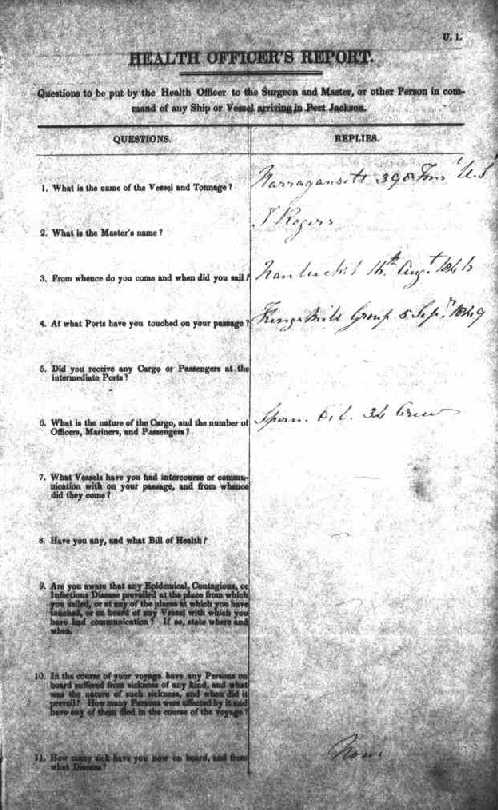 U. I.
HEALTH OFFICER'S REPORT.
Questions to be put by the Health Officer to the Surgeon and Master, or other Person in com-
mand of any Ship or Vessel arriving in Port Jackson.
QUESTIONS.
REPLIES.
1. What is the name of the Vessel and Tonnage?
Narragansett 398 Tons U.S
2. What is the Master's name?
Rogers
3. From whence do you come and when did you sail?
Nantucket Augt
4. At what Ports have you touched on your passage?
Group 5 Sepr 1849
5. Did you receive any Cargo or Passengers at the
Intermediate Ports?
6. What is the nature of the Cargo, and the number of
Officers, Mariners, and Passengers?
Sperm Oil Crew
7. What Vessels have you had intercourse or commu-
nication with on your passage, and from whence
did they come?
8. Have you any, and what Bill of Health?
9. Are you aware that any Epidemical, Contagious, or
Infectious Disease prevailed at the place from which
you sailed, or at any of the places at which you have
touched, or on board of any Vessel with which you
have had communication? If so, state where and
when.
10. In the course of your voyage have any Persons on
board suffered from sickness of any kind, and what
was the nature of such sickness, and when did it
prevail? How many Persons were affected by it and
have any of them died in the course of the voyage?
11. How many sick have you now on board, and from
what Disease?
None